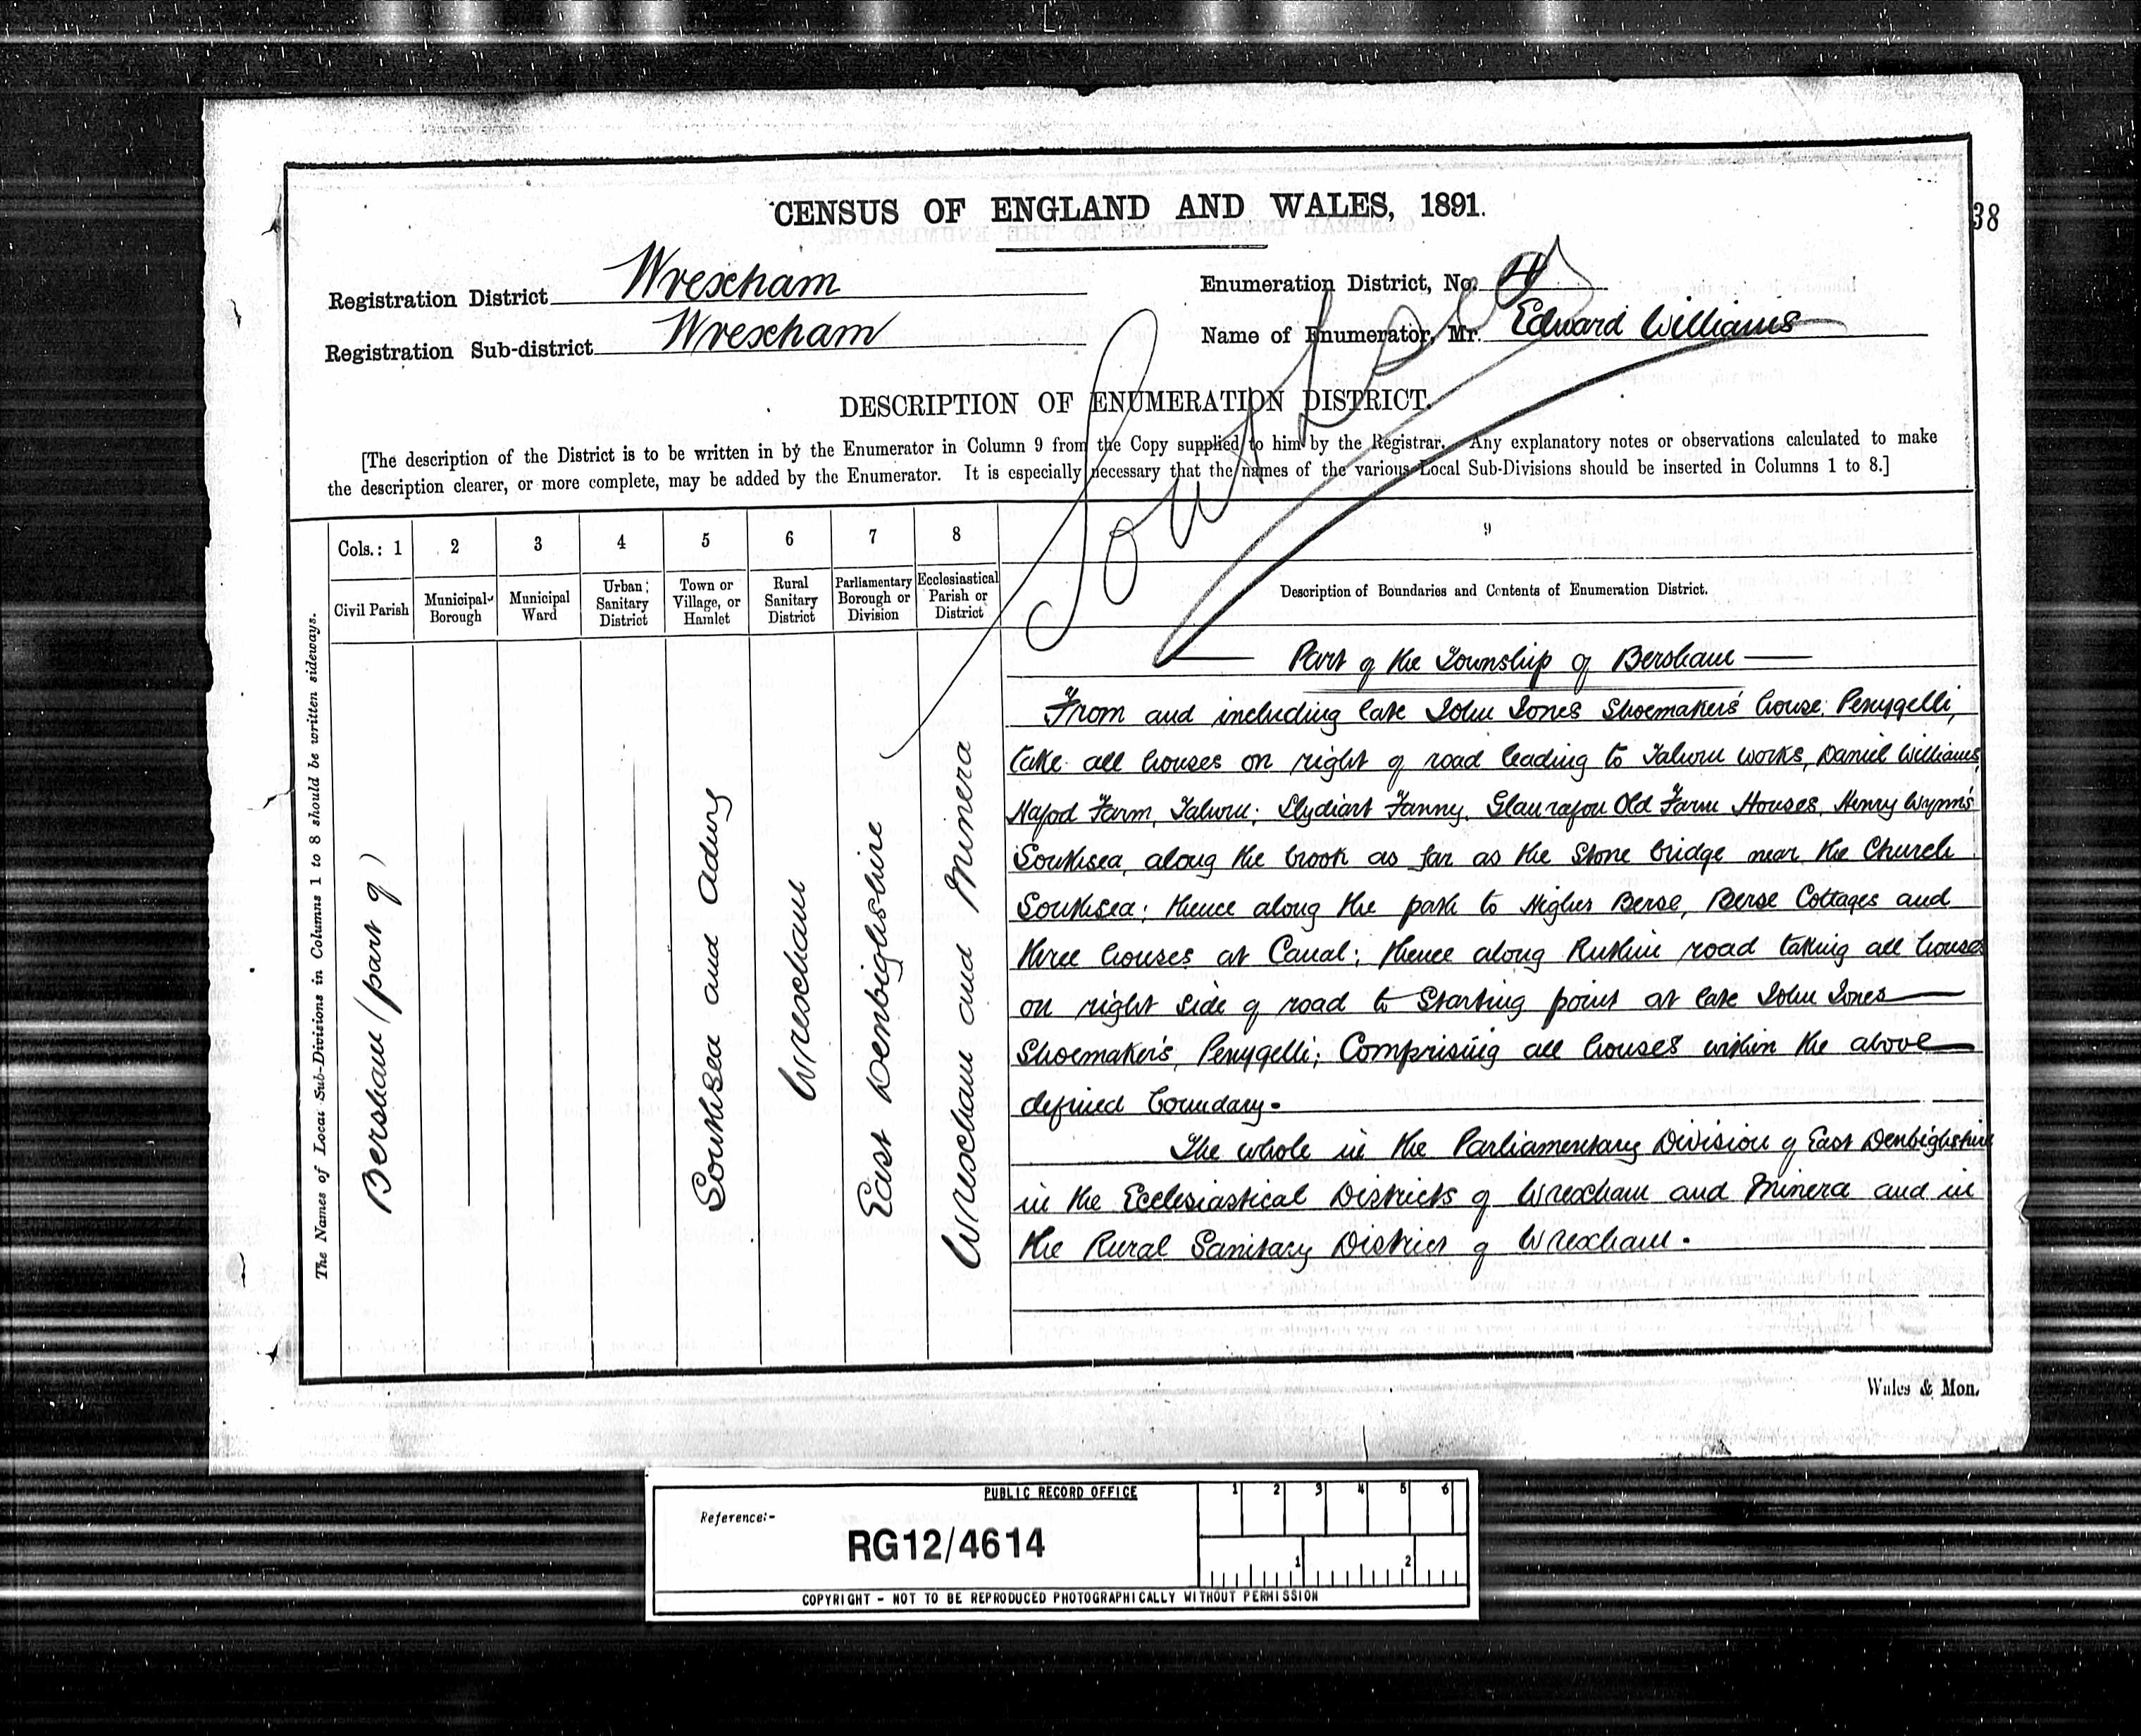 CENSUS OF ENGLAND AND WALES, 1891.
38
Registration District Wrexham
Enumeration District, No. 4
Registration Sub-district Wrexham
Name of Enumerator, Mr. Edward Williams
Southsea
DESCRIPTION OF ENUMERATION DISTRICT.
[The description of the District is to be written in by the Enumerator in Column 9 from the Copy supplied to him by the Registrar. Any explanatory notes or observations calculated to make
the description clearer, or more complete, may be added by the Enumerator. It is especially necessary that the names of the various Local Sub-Divisions should be inserted in Columns 1 to 8.]
The Names of Local Sub-Divisions in Columns 1 to 8 should be written sideways.
Cols.: 1 2 3 4 5 6 7 8 9
Civil Parish
Municipal Borough
Municipal Ward
Urban Sanitary District
Town or Village, or Hamlet
Rural Sanitary District
Parliamentary Borough or Division
Ecclesiastical Parish or District
Description of Boundaries and Contents of Enumeration District.
Bersham (part of)
Southsea and Adwy
Wrexham
East Denbighshire
Wrexham and Minera
Part of the Township of Bersham
From and including late John Jones Shoemaker's house, Penygelli,
take all houses on right of road leading to Talwrn works, Daniel Williams,
Hafod Farm, Talwrn; Llydiart Fanny, Glanrafon Old Farm Houses, Henry Wynn's
Southsea, along the brook as far as the Stone bridge near the Church
Southsea; thence along the path to Higher Berse, Berse Cottages and
three houses at Canal; thence along Ruthin road taking all houses
on right side of road to Starting point at late John Jones
Shoemaker's, Penygelli; Comprising all houses within the above
defined boundary.
The whole in the Parliamentary Division of East Denbighshire
in the Ecclesiastical Districts of Wrexham and Minera and in
the Rural Sanitary District of Wrexham.
Wales & Mon.
PUBLIC RECORD OFFICE
Reference:-
RG12/4614
1 2 3 4 5 6
1 2
COPYRIGHT - NOT TO BE REPRODUCED PHOTOGRAPHICALLY WITHOUT PERMISSION